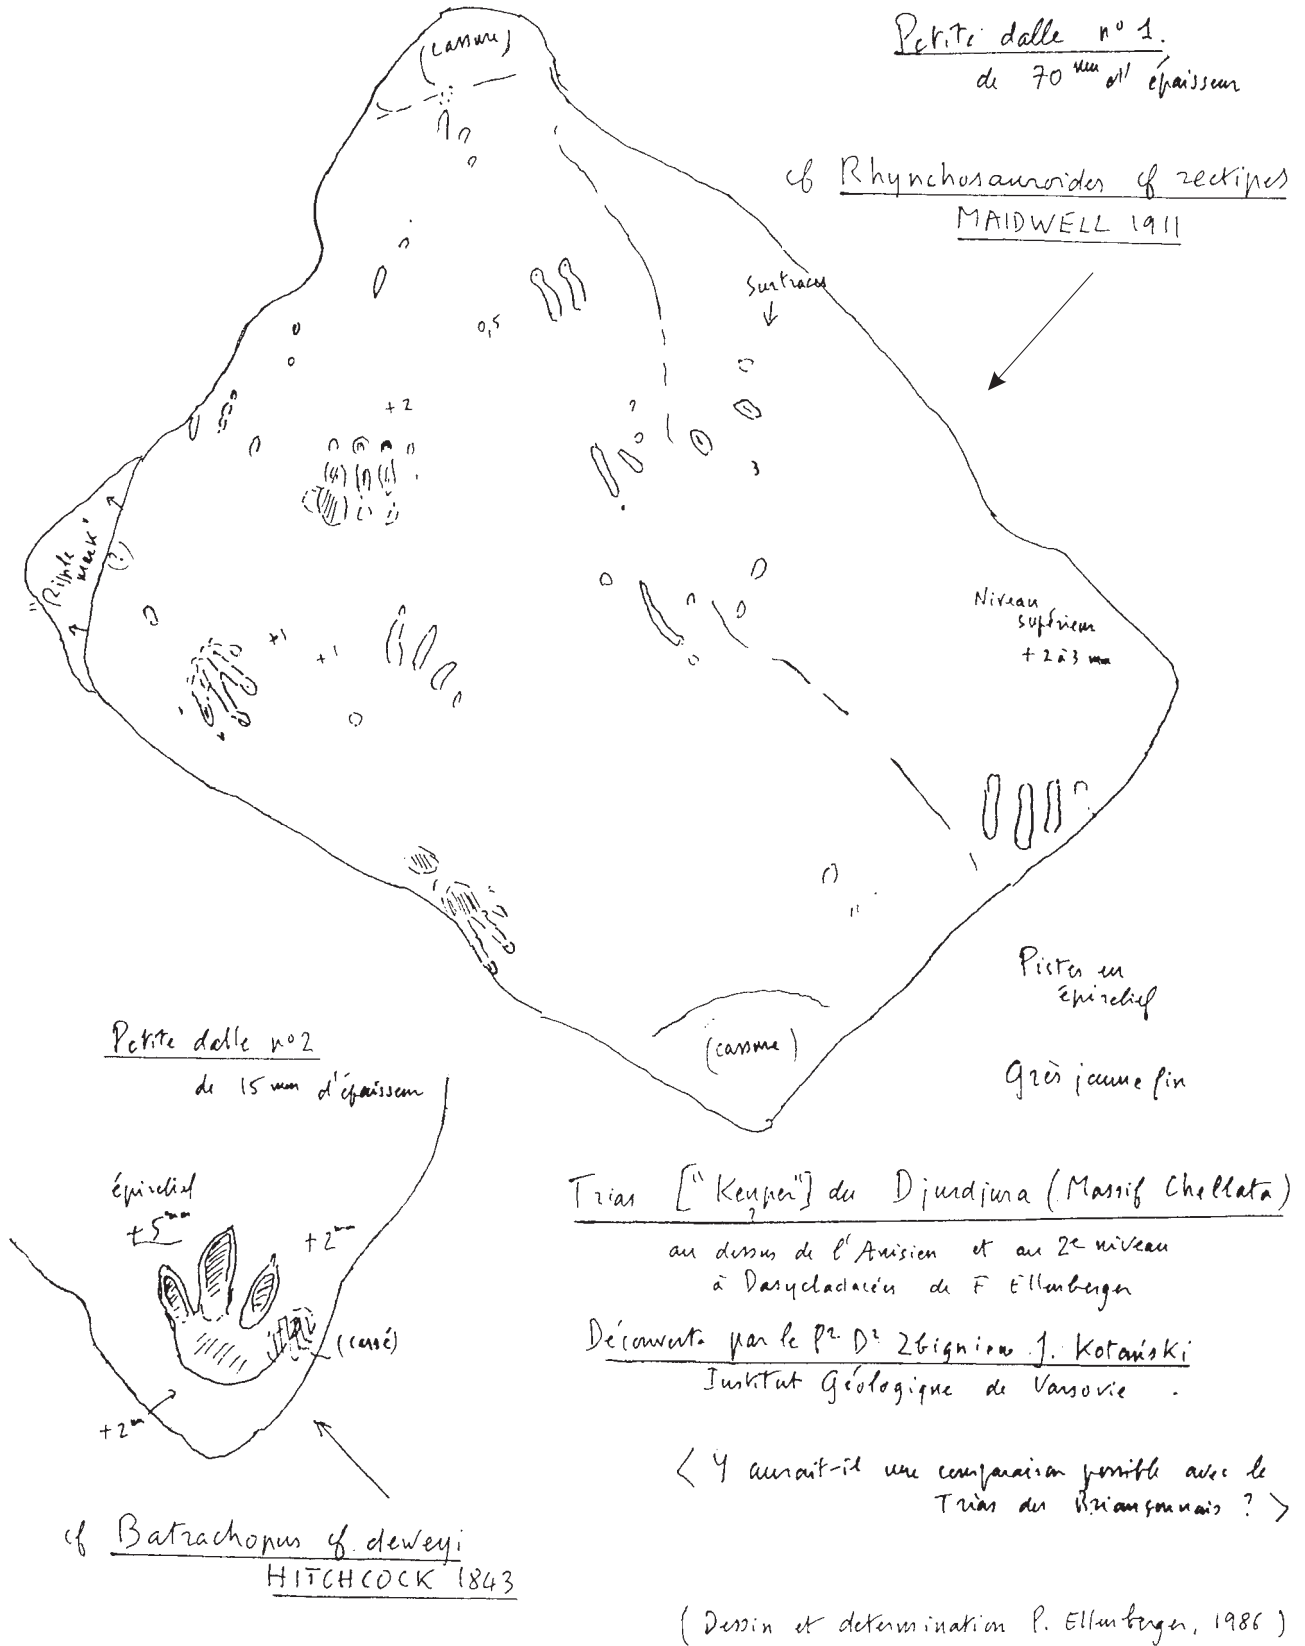 Petite dalle n° 1.
de 70 mm d'épaisseur
(cassure)
cf Rhynchosauroides cf rectipes
MAIDWELL 1911
Surtraces
0,5
+2
?
3
"Ripple
mark"
(?)
+1
+1
Niveau
supérieur
+ 2 à 3 mm
Pistes en
épirelief
(cassure)
Grès jaune fin
Petite dalle n° 2
de 15 mm d'épaisseur
épirelief
+5 mm
+2 mm
(cassé)
+2 m
cf Batrachopus cf. deweyi
HITCHCOCK 1843
Trias ["Keuper"] du Djurdjura (Massif Chellata)
?
au dessus de l'Anisien et au 2e niveau
à Dasycladacées de F Ellenberger
Découverte par le Pr Dr Zbigniew J. Kotański
Institut Géologique de Varsovie .
< Y aurait-il une comparaison possible avec le
Trias du Briançonnais ? >
(Dessin et determination P. Ellenberger, 1986)